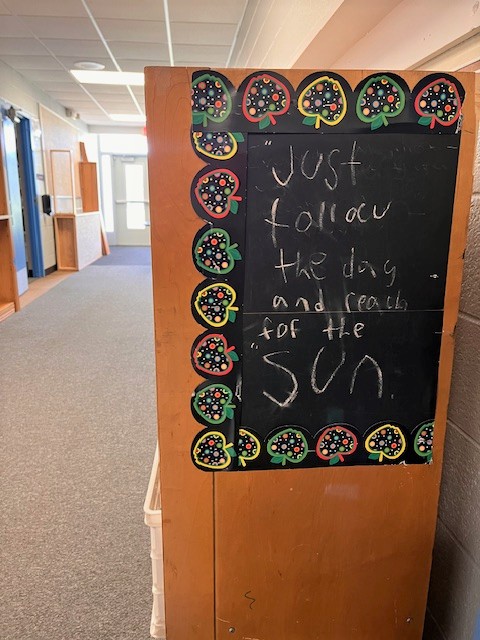 "Just
follow
the day
and reach
for the
"Sun.